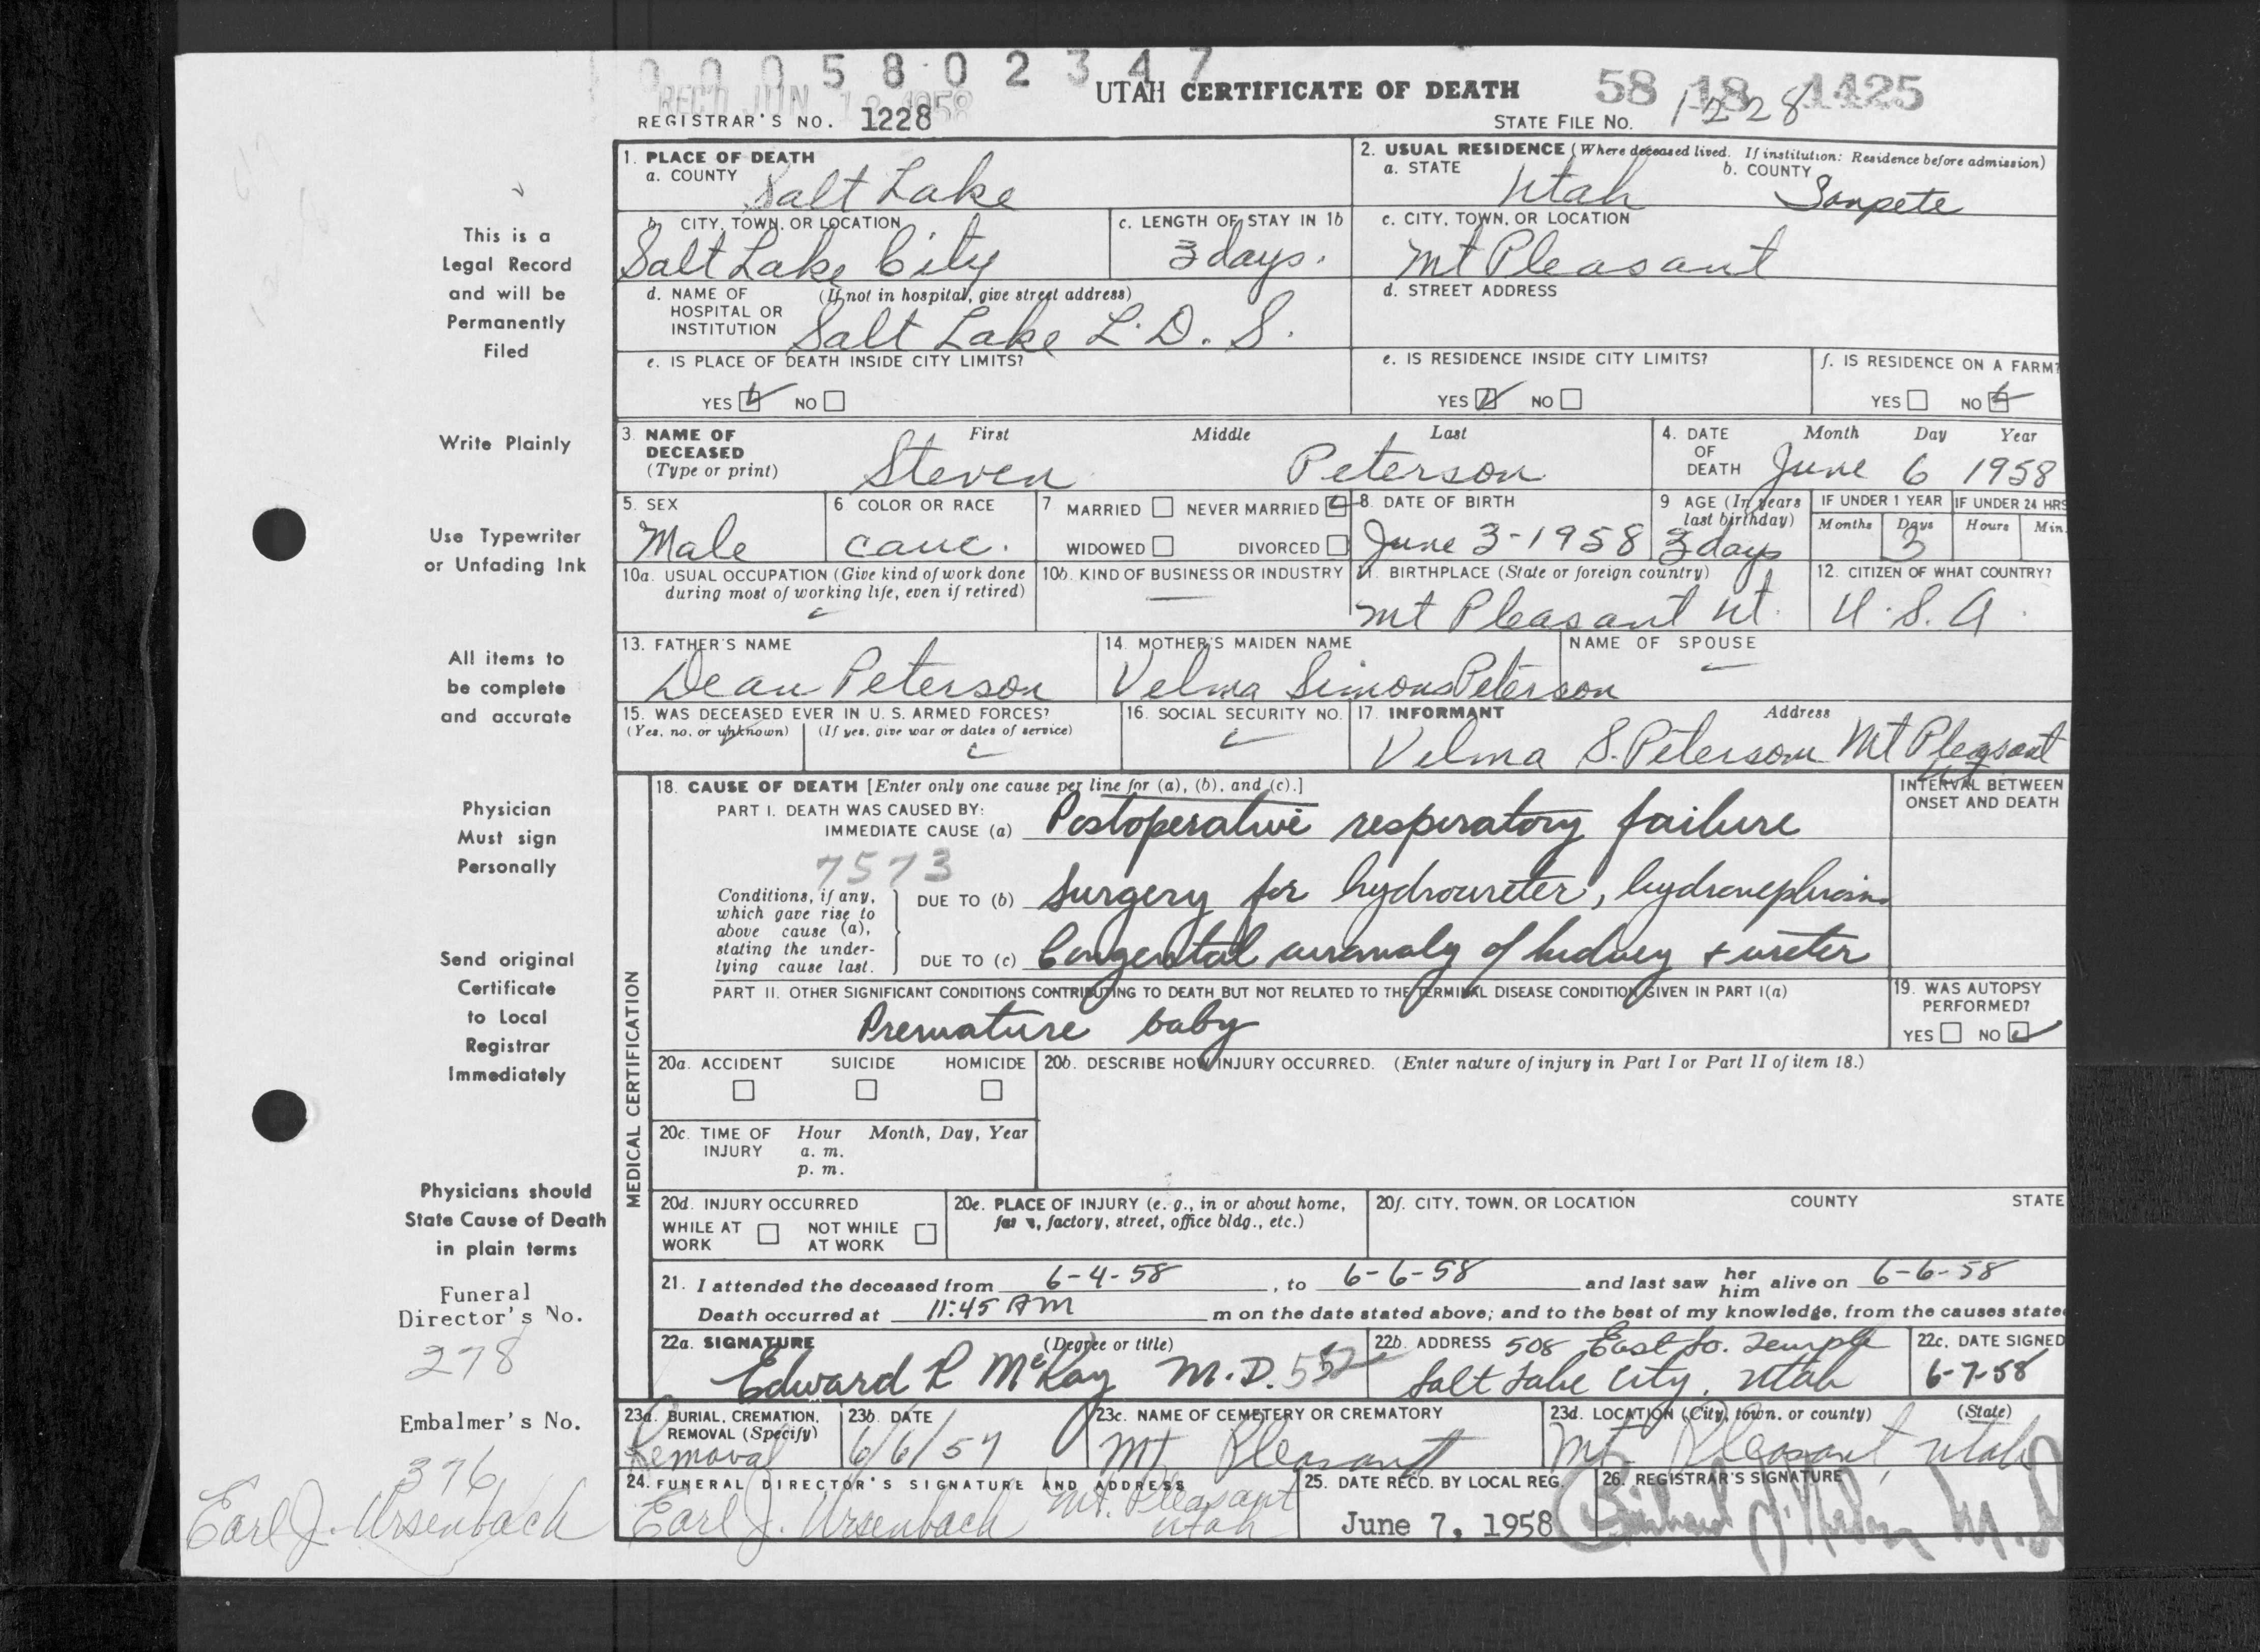 0 0 0 5 8 0 2 3 4 7
REC'D JUN 1958
UTAH CERTIFICATE OF DEATH
58 18 1425
REGISTRAR'S NO. 1228
STATE FILE NO. 1228
1. PLACE OF DEATH
a. COUNTY Salt Lake
2. USUAL RESIDENCE (Where deceased lived. If institution: Residence before admission)
a. STATE Utah b. COUNTY Sanpete
b. CITY, TOWN, OR LOCATION Salt Lake City
c. LENGTH OF STAY IN 1b 3 days.
c. CITY, TOWN, OR LOCATION Mt Pleasant
d. NAME OF HOSPITAL OR INSTITUTION (If not in hospital, give street address) Salt Lake L.D.S.
d. STREET ADDRESS
e. IS PLACE OF DEATH INSIDE CITY LIMITS?
YES NO
e. IS RESIDENCE INSIDE CITY LIMITS?
YES NO
f. IS RESIDENCE ON A FARM?
YES NO
3. NAME OF DECEASED (Type or print)
First Middle Last
Steven Peterson
4. DATE OF DEATH Month Day Year
June 6 1958
5. SEX Male
6 COLOR OR RACE cauc.
7 MARRIED NEVER MARRIED
WIDOWED DIVORCED
8. DATE OF BIRTH June 3-1958
9 AGE (In years last birthday) 3 days
IF UNDER 1 YEAR IF UNDER 24 HRS
Months Days Hours Min.
3
10a. USUAL OCCUPATION (Give kind of work done during most of working life, even if retired)
10b. KIND OF BUSINESS OR INDUSTRY
11. BIRTHPLACE (State or foreign country) Mt Pleasant Ut.
12. CITIZEN OF WHAT COUNTRY? U.S.A.
13. FATHER'S NAME Dean Peterson
14. MOTHER'S MAIDEN NAME Velma Simons Peterson
NAME OF SPOUSE
15. WAS DECEASED EVER IN U. S. ARMED FORCES?
(Yes, no, or unknown) (If yes, give war or dates of service)
16. SOCIAL SECURITY NO.
17. INFORMANT Address
Velma S. Peterson Mt Pleasant Ut
18. CAUSE OF DEATH [Enter only one cause per line for (a), (b), and (c).]
INTERVAL BETWEEN ONSET AND DEATH
PART I. DEATH WAS CAUSED BY:
IMMEDIATE CAUSE (a) Postoperative respiratory failure
7573
Conditions, if any, which gave rise to above cause (a), stating the underlying cause last.
DUE TO (b) Surgery for hydroureter, hydronephrosis
DUE TO (c) Congenital anomaly of kidney + ureter
PART II. OTHER SIGNIFICANT CONDITIONS CONTRIBUTING TO DEATH BUT NOT RELATED TO THE TERMINAL DISEASE CONDITION GIVEN IN PART I(a)
Premature baby
19. WAS AUTOPSY PERFORMED?
YES NO
MEDICAL CERTIFICATION
20a. ACCIDENT SUICIDE HOMICIDE
20b. DESCRIBE HOW INJURY OCCURRED. (Enter nature of injury in Part I or Part II of item 18.)
20c. TIME OF INJURY Hour Month, Day, Year
a. m.
p. m.
20d. INJURY OCCURRED
WHILE AT WORK NOT WHILE AT WORK
20e. PLACE OF INJURY (e. g., in or about home, farm, factory, street, office bldg., etc.)
20f. CITY, TOWN, OR LOCATION COUNTY STATE
21. I attended the deceased from 6-4-58, to 6-6-58 and last saw her him alive on 6-6-58
Death occurred at 11:45 AM m on the date stated above; and to the best of my knowledge, from the causes state
22a. SIGNATURE (Degree or title)
Edward R McKay M.D. 552
22b. ADDRESS 508 East So. Temple
Salt Lake City, Utah
22c. DATE SIGNED
6-7-58
23a. BURIAL, CREMATION, REMOVAL (Specify) Removal
23b. DATE 6/6/57
23c. NAME OF CEMETERY OR CREMATORY Mt. Pleasant
23d. LOCATION (City, town, or county) (State) Mt. Pleasant, Utah
24. FUNERAL DIRECTOR'S SIGNATURE AND ADDRESS
Earl J. Ursenbach Mt. Pleasant Utah
25. DATE RECD. BY LOCAL REG.
June 7, 1958
26. REGISTRAR'S SIGNATURE
This is a
Legal Record
and will be
Permanently
Filed
Write Plainly
Use Typewriter
or Unfading Ink
All items to
be complete
and accurate
Physician
Must sign
Personally
Send original
Certificate
to Local
Registrar
Immediately
Physicians should
State Cause of Death
in plain terms
Funeral
Director's No.
278
Embalmer's No.
376
Earl J. Ursenbach